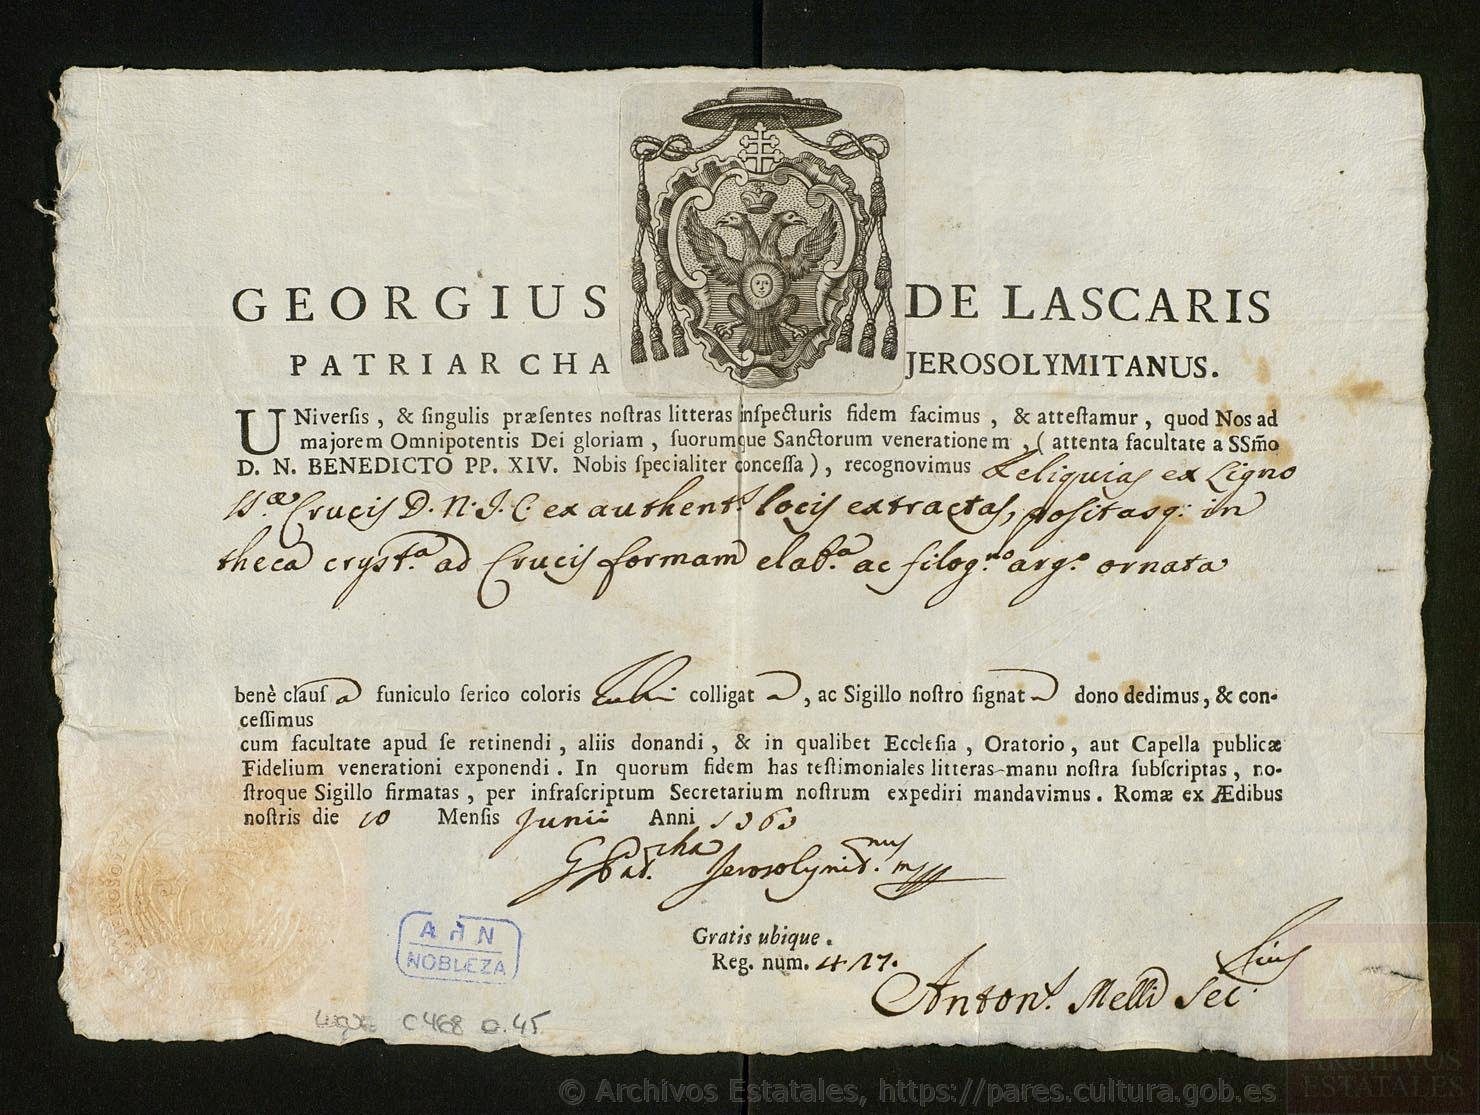 GEORGIUS DE LASCARIS
PATRIARCHA JEROSOLYMITANUS.
UNiversis, & singulis præsentes nostras litteras inspecturis fidem facimus, & attestamur, quod Nos ad
majorem Omnipotentis Dei gloriam, suorumque Sanctorum venerationem, (attenta facultate a SSm̃o
D. N. BENEDICTO PP. XIV. Nobis specialiter concessa), recognovimus Reliquias ex Ligno
SS.æ Crucis D. N. J. C. ex authent.s locis extractas, positasq; in
theca cryst.a ad Crucis formam elab.a ac filog.no arg.o ornata
benè claus a funiculo serico coloris rubri colligat a, ac Sigillo nostro signat a dono dedimus, & con-
cessimus
cum facultate apud se retinendi, aliis donandi, & in qualibet Ecclesia, Oratorio, aut Capella publicæ
Fidelium venerationi exponendi. In quorum fidem has testimoniales litteras manu nostra subscriptas, no-
stroque Sigillo firmatas, per infrascriptum Secretarium nostrum expediri mandavimus. Romæ ex Ædibus
nostris die 10 Mensis Junii Anni
G Pat.cha Jerosolymit.nus
Gratis ubique.
Reg. num. 417.
Anton.s Melli Sec.rius
A H N
NOBLEZA
LUQUE C 468 D. 45
© Archivos Estatales, https://pares.cultura.gob.es
ARCHIVOS
ESTATALES